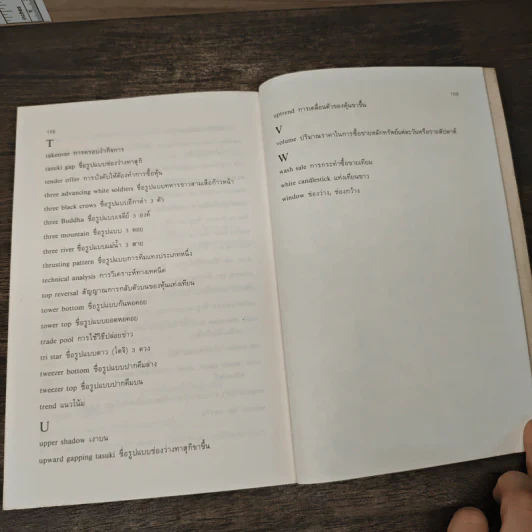 T
takeover การครอบงำกิจการ
tasuki gap ชื่อรูปแบบช่องว่างทาสุกิ
tender offer การบังคับให้ต้องทำการซื้อหุ้น
three advancing white soldiers ชื่อรูปแบบทหารขาวสามเสือก้าวหน้า
three black crows ชื่อรูปแบบอีกาดำ 3 ตัว
three Buddha ชื่อรูปแบบเจดีย์ 3 องค์
three mountain ชื่อรูปแบบ 3 ดอย
three river ชื่อรูปแบบแม่น้ำ 3 สาย
thrusting pattern ชื่อรูปแบบการทิ่มแทงประเภทหนึ่ง
technical analysis การวิเคราะห์ทางเทคนิค
top reversal สัญญาณการกลับตัวบนของหุ้นแท่งเทียน
tower bottom ชื่อรูปแบบก้นหอคอย
tower top ชื่อรูปแบบยอดหอคอย
trade pool การใช้วิธีปล่อยข่าว
tri star ชื่อรูปแบบดาว (โดจิ) 3 ดวง
tweezer bottom ชื่อรูปแบบปากคีมล่าง
tweezer top ชื่อรูปแบบปากคีมบน
trend แนวโน้ม
U
upper shadow เงาบน
upward gapping tasuki ชื่อรูปแบบช่องว่างทาสุกิขาขึ้น
uptrend การเคลื่อนตัวของหุ้นขาขึ้น
V
volume ปริมาณราคาในการซื้อขายหลักทรัพย์แต่ละวันหรือรายสัปดาห์
W
wash sale การกระทำซื้อขายเทียม
white candlestick แท่งเทียนขาว
window ช่องว่าง, ช่องกว้าง